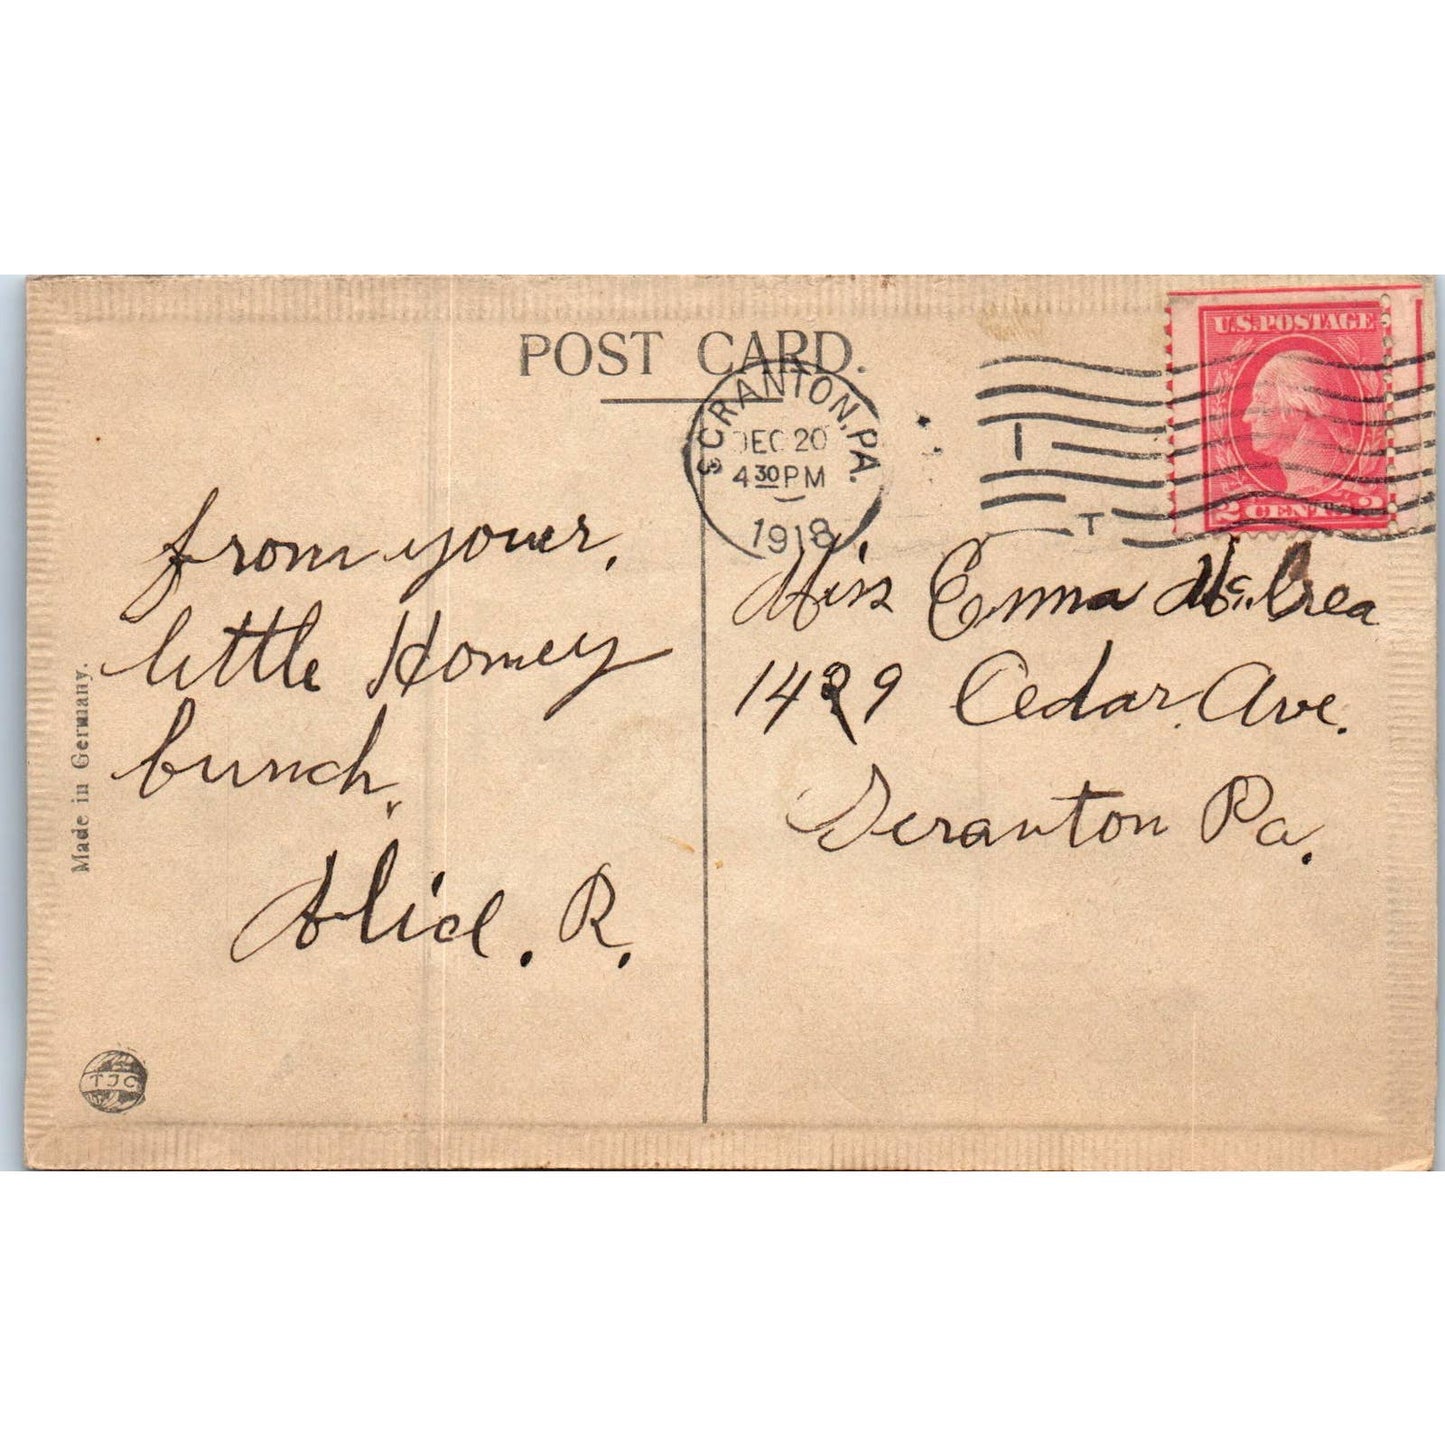 POST CARD.
SCRANTON, PA.
DEC 20
4 30 PM
1918
U.S. POSTAGE
2 CENTS 2
from youer,
little Homey
bunch,
Alice. R.
Miss Emma McCrea
1429 Cedar Ave.
Scranton Pa.
Made in Germany.
TJC